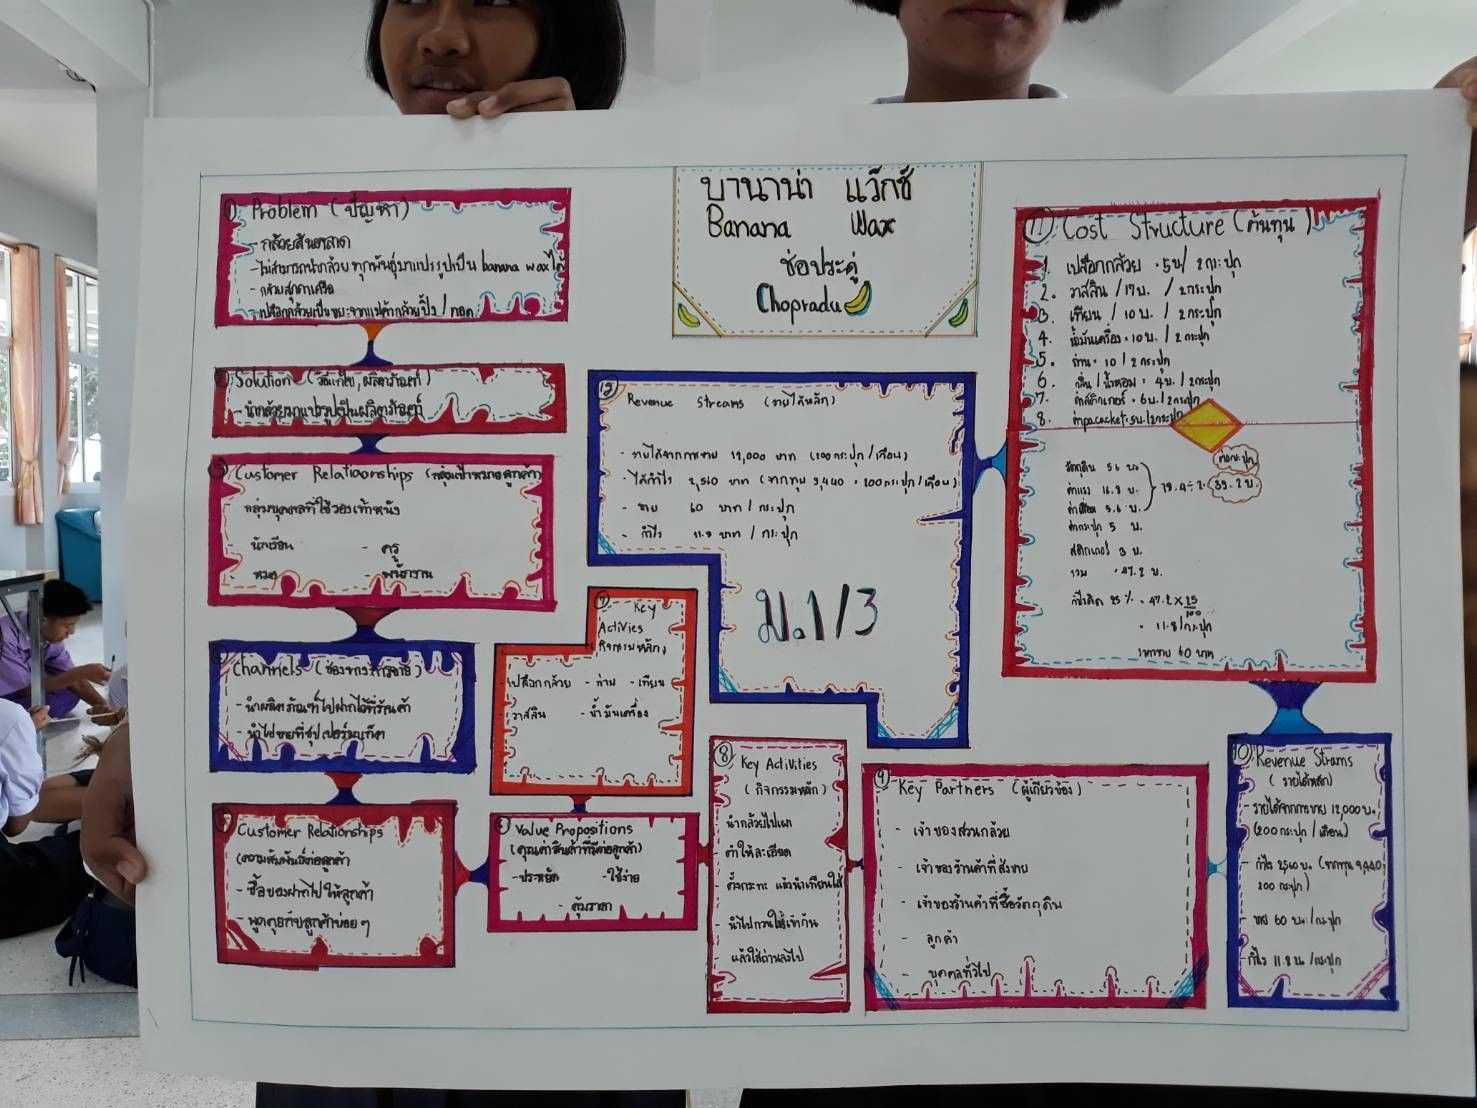 บานาน่า แว๊กซ์
Banana Wax
ช่อประดู่
Chopradu
1 Problem (ปัญหา)
- กล้วยล้นตลาด
- ไม่สามารถนำกล้วยทุกพันธุ์มาแปรรูปเป็น banana wax ได้
- กล้วยสุกคาเครือ
- เปลือกกล้วยเป็นขยะจากแม่ค้ากล้วยปิ้ง / ทอด
Solution (วิธีแก้ไข, ผลิตภัณฑ์)
- นำกล้วยมาแปรรูปเป็นผลิตภัณฑ์
Customer Relationships (กลุ่มเป้าหมายลูกค้า)
- กลุ่มบุคคลที่ใช้รองเท้าหนัง
- นักเรียน - ครู
พนักงาน
Channels (ช่องทางการขาย)
- นำผลิตภัณฑ์ไปฝากไว้ที่ร้านค้า
- นำไปขายที่ซุปเปอร์มาเก็ต
Customer Relationships
(ความสัมพันธ์ต่อลูกค้า)
- ซื้อของฝากไปให้ลูกค้า
- พูดคุยกับลูกค้าบ่อยๆ
Value Propositions
(คุณค่าสินค้าที่มีต่อลูกค้า)
- ประหยัด - ใช้ง่าย
- คุ้มราคา
7 Key
Activies
(กิจกรรมหลัก)
เปลือกกล้วย - ถ่าน - เทียน
วาสลีน - น้ำมันเครื่อง
8 Key Activities
(กิจกรรมหลัก)
นำกล้วยไปเผา
ตำให้ละเอียด
ตั้งกระทะ แล้วนำเทียนใส่
- นำไปกวนให้เข้ากัน
แล้วใส่ถ่านลงไป
9 Key Partners (ผู้เกี่ยวข้อง)
- เจ้าของสวนกล้วย
- เจ้าของร้านค้าที่ส่งขาย
- เจ้าของร้านค้าที่ซื้อวัตถุดิบ
- ลูกค้า
- บุคคลทั่วไป
10 Revenue Strams
(รายได้หลัก)
- รายได้จากการขาย 12,000 บ.
(200 กระปุก / เดือน)
- กำไร 2,560 บ. (จากทุน 9,440,
200 กระปุก)
- ขาย 60 บ. / กระปุก
- กำไร 11.8 บ. / กระปุก
11 Cost Structure (ต้นทุน)
1. เปลือกกล้วย · 5 บ / 2 กระปุก
2. วาสลีน / 17 บ. / 2 กระปุก
3. เทียน / 10 บ. / 2 กระปุก
4. น้ำมันเครื่อง · 10 บ. / 2 กระปุก
5. ถ่าน · 10 / 2 กระปุก
6. กลิ่น / น้ำหอม · 4 บ. / 2 กระปุก
7. ค่าสติกเกอร์ · 6 บ. / 2 กระปุก
8.
วัตถุดิบ 56 บาท
ค่าแรง 16.8 บ.
5.6 บ.
ค่ากระปุก 5 บ.
สติกเกอร์ 3 บ.
รวม · 47.2 บ.
78.4 ÷ 2 · 39.2 บ.
ต่อกระปุก
กำไรคิด 25 % · 47.2 × 25/100
= 11.8 / กระปุก
ราคาขาย 60 บาท
12 Revenue Streams (รายได้หลัก)
- รายได้จากการขาย 12,000 บาท (200 กระปุก / เดือน)
- ได้กำไร 2,560 บาท (จากทุน 9,440 · 200 กระปุก / เดือน)
- ขาย 60 บาท / กระปุก
- กำไร 11.8 บาท / กระปุก
ม.1/3